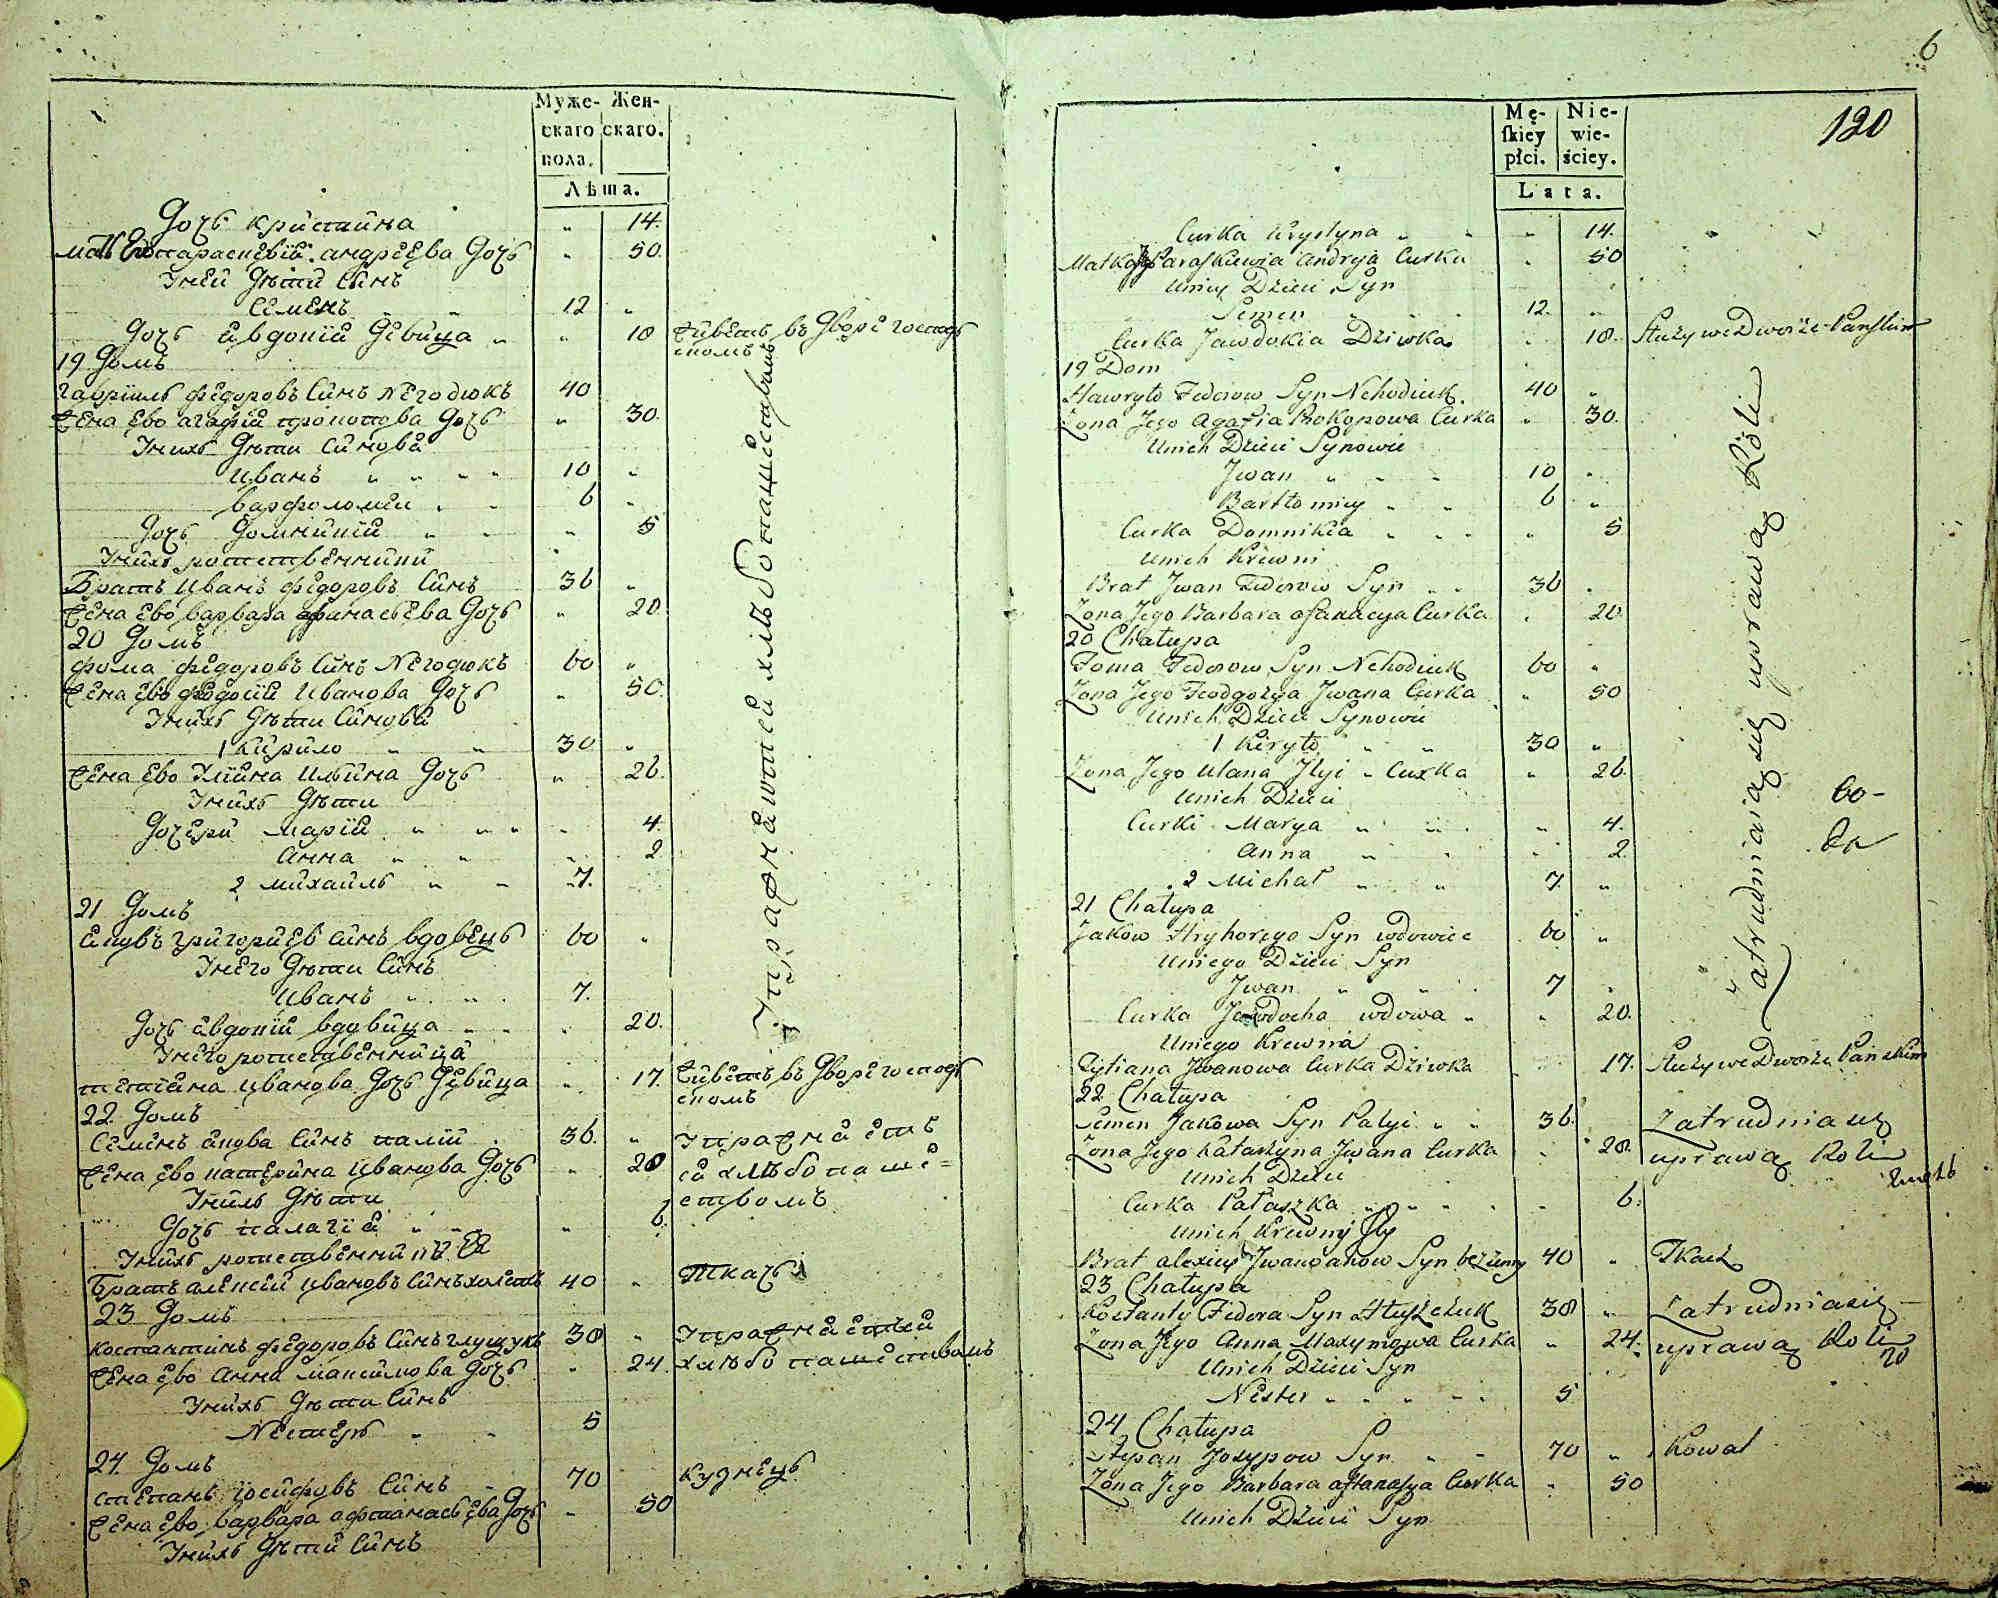 Муже-
скаго
пола.
Жен-
скаго.
Лѣта.
Дочь Кристина " 14.
Мать Ево Параскевiя Андреева Дочь " 50.
Унеи Дѣти Синъ
Семенъ 12 "
Дочь Евдокiя Девица " " 18 Живетъ въ Дворе господ
скомъ
19 Домъ
Гаврiилъ Федоровъ Синъ Негодюкъ 40
Жена Ево Агафiя Прокопова Дочь " 30.
Унихъ Дѣти Синовя
Иванъ " " " " 10 "
Варфоломеи " " 6 "
Дочь Домникiя " " " 5
Унихъ ротственники
Братъ Иванъ Федоровъ Синъ 36 "
Жена Ево Варвара Афинасьева Дочь " 20
20 Домъ
Фома Федоровъ Синъ Негодюкъ 60 "
Жена Ево Феодосiя Иванова Дочь " 50.
Унихъ Дѣти Синовя
1 Кирило " " 30 "
Жена Ево Улiяна Ильина Дочь " 26.
Унихъ Дѣти
Дочери Марiя " " " " 4.
Анна " " " 2
2 Михаилъ " " 7.
21 Домъ
Яковъ Григориевъ Синъ Вдовецъ 60 "
Унего Дѣти Синъ
Иванъ " " " 7.
Дочь Евдокiя Вдовица " " " 20.
Унего ротственница
Тетяна Иванова Дочь Девица " 17. Живетъ въ Дворе господ
скомъ
22 Домъ
Семенъ Якова Синъ Палiй . 36. " Упражняетъ
Жена Ево Катерина Иванова Дочь " 28 ся хлѣбопаше=
Унихъ Дѣти ствомъ
Дочь Палагiя " " " " 6.
Унихъ ротственники
Братъ Алексей Ивановъ Синъ холстъ 40 " Ткачъ
23 Домъ
Костантинъ Федоровъ Синъ Глущукъ 38 " Упражняется
Жена Ево Анна Максимова Дочь " 24. хлѣбопашествомъ
Унихъ Дѣти Синъ
Нестеръ " " 5
24 Домъ
Степанъ Iосифовъ Синъ " 70 Кузнецъ
Жена Ево Варвара Афтанасьева Дочь " 50
Унихъ Дѣти Синъ
Упражняются хлѣбопашествомъ
6
120
Mę-
skiey
płci.
Nie-
wie-
ściey.
Lata.
Curka Krystyna " " " 14. " "
Matka Jego Paraskiewia Andryja Curka " 50
Uniey Dzieci Syn
Semen " " " 12. "
Curka Jawdokia Dziwka " 18. Służy we Dworze Pańskim
19 Dom
Hawryło Fedorow Syn Nehodiuk. 40 "
Zona Jego Agafia Prokopowa Curka " 30.
Unich Dzieci Synowie
Jwan " " " " 10 "
Bartłomiey " " 6 "
Curka Domnikia " " " " 5
Unich Krewni
Brat Jwan Fedorow Syn " " 36 "
Zona Jego Barbara Afanacyja Curka " 20
20 Chałupa
Foma Fedorow Syn Nehodiuk 60 "
Zona Jego Jwana Curka " 50
Unich Dzieci Synowie
1 Kiryło " " 30 "
Zona Jego Ulana Jlyi " Curka " 26.
Unich Dzieci
Curki Marya " " " 4.
Anna " " " 2.
2 Michał " " 7. "
21 Chałupa
Jakow Hryhorego Syn wdowiec 60 "
Uniego Dzieci Syn
Jwan " " " 7 "
Curka Jewdocha wdowa " " 20.
Uniego Krewnia
Tytiana Jwanowa Curka Dziwka 17. Służy we Dworze Pańskim
22 Chałupa
Semen Jakowa Syn Palyi " " 36. " Zatrudnia się
Zona Jego Katarzyna Jwana Curka " 28. uprawą Roli
Unich Dzieci
Curka Pałaszka " " " " " 6.
Unich Krewny
Brat Alexiey Syn bezżeny 40 " Tkacz
23 Chałupa
Kostanty Fidora Syn 38 " Zatrudnia się
Zona Jego Anna Maxymowa Curka " 24. uprawą Roli
20
Unich Dzieci Syn
Nester " " " " " 5
24 Chałupa
Stepan Jozypow Syn " " 70 " Kowal
Zona Jego Barbara Aftanasya Curka " 50
Unich Dzieci Syn
Zatrudniaią się uprawą Roli
60-